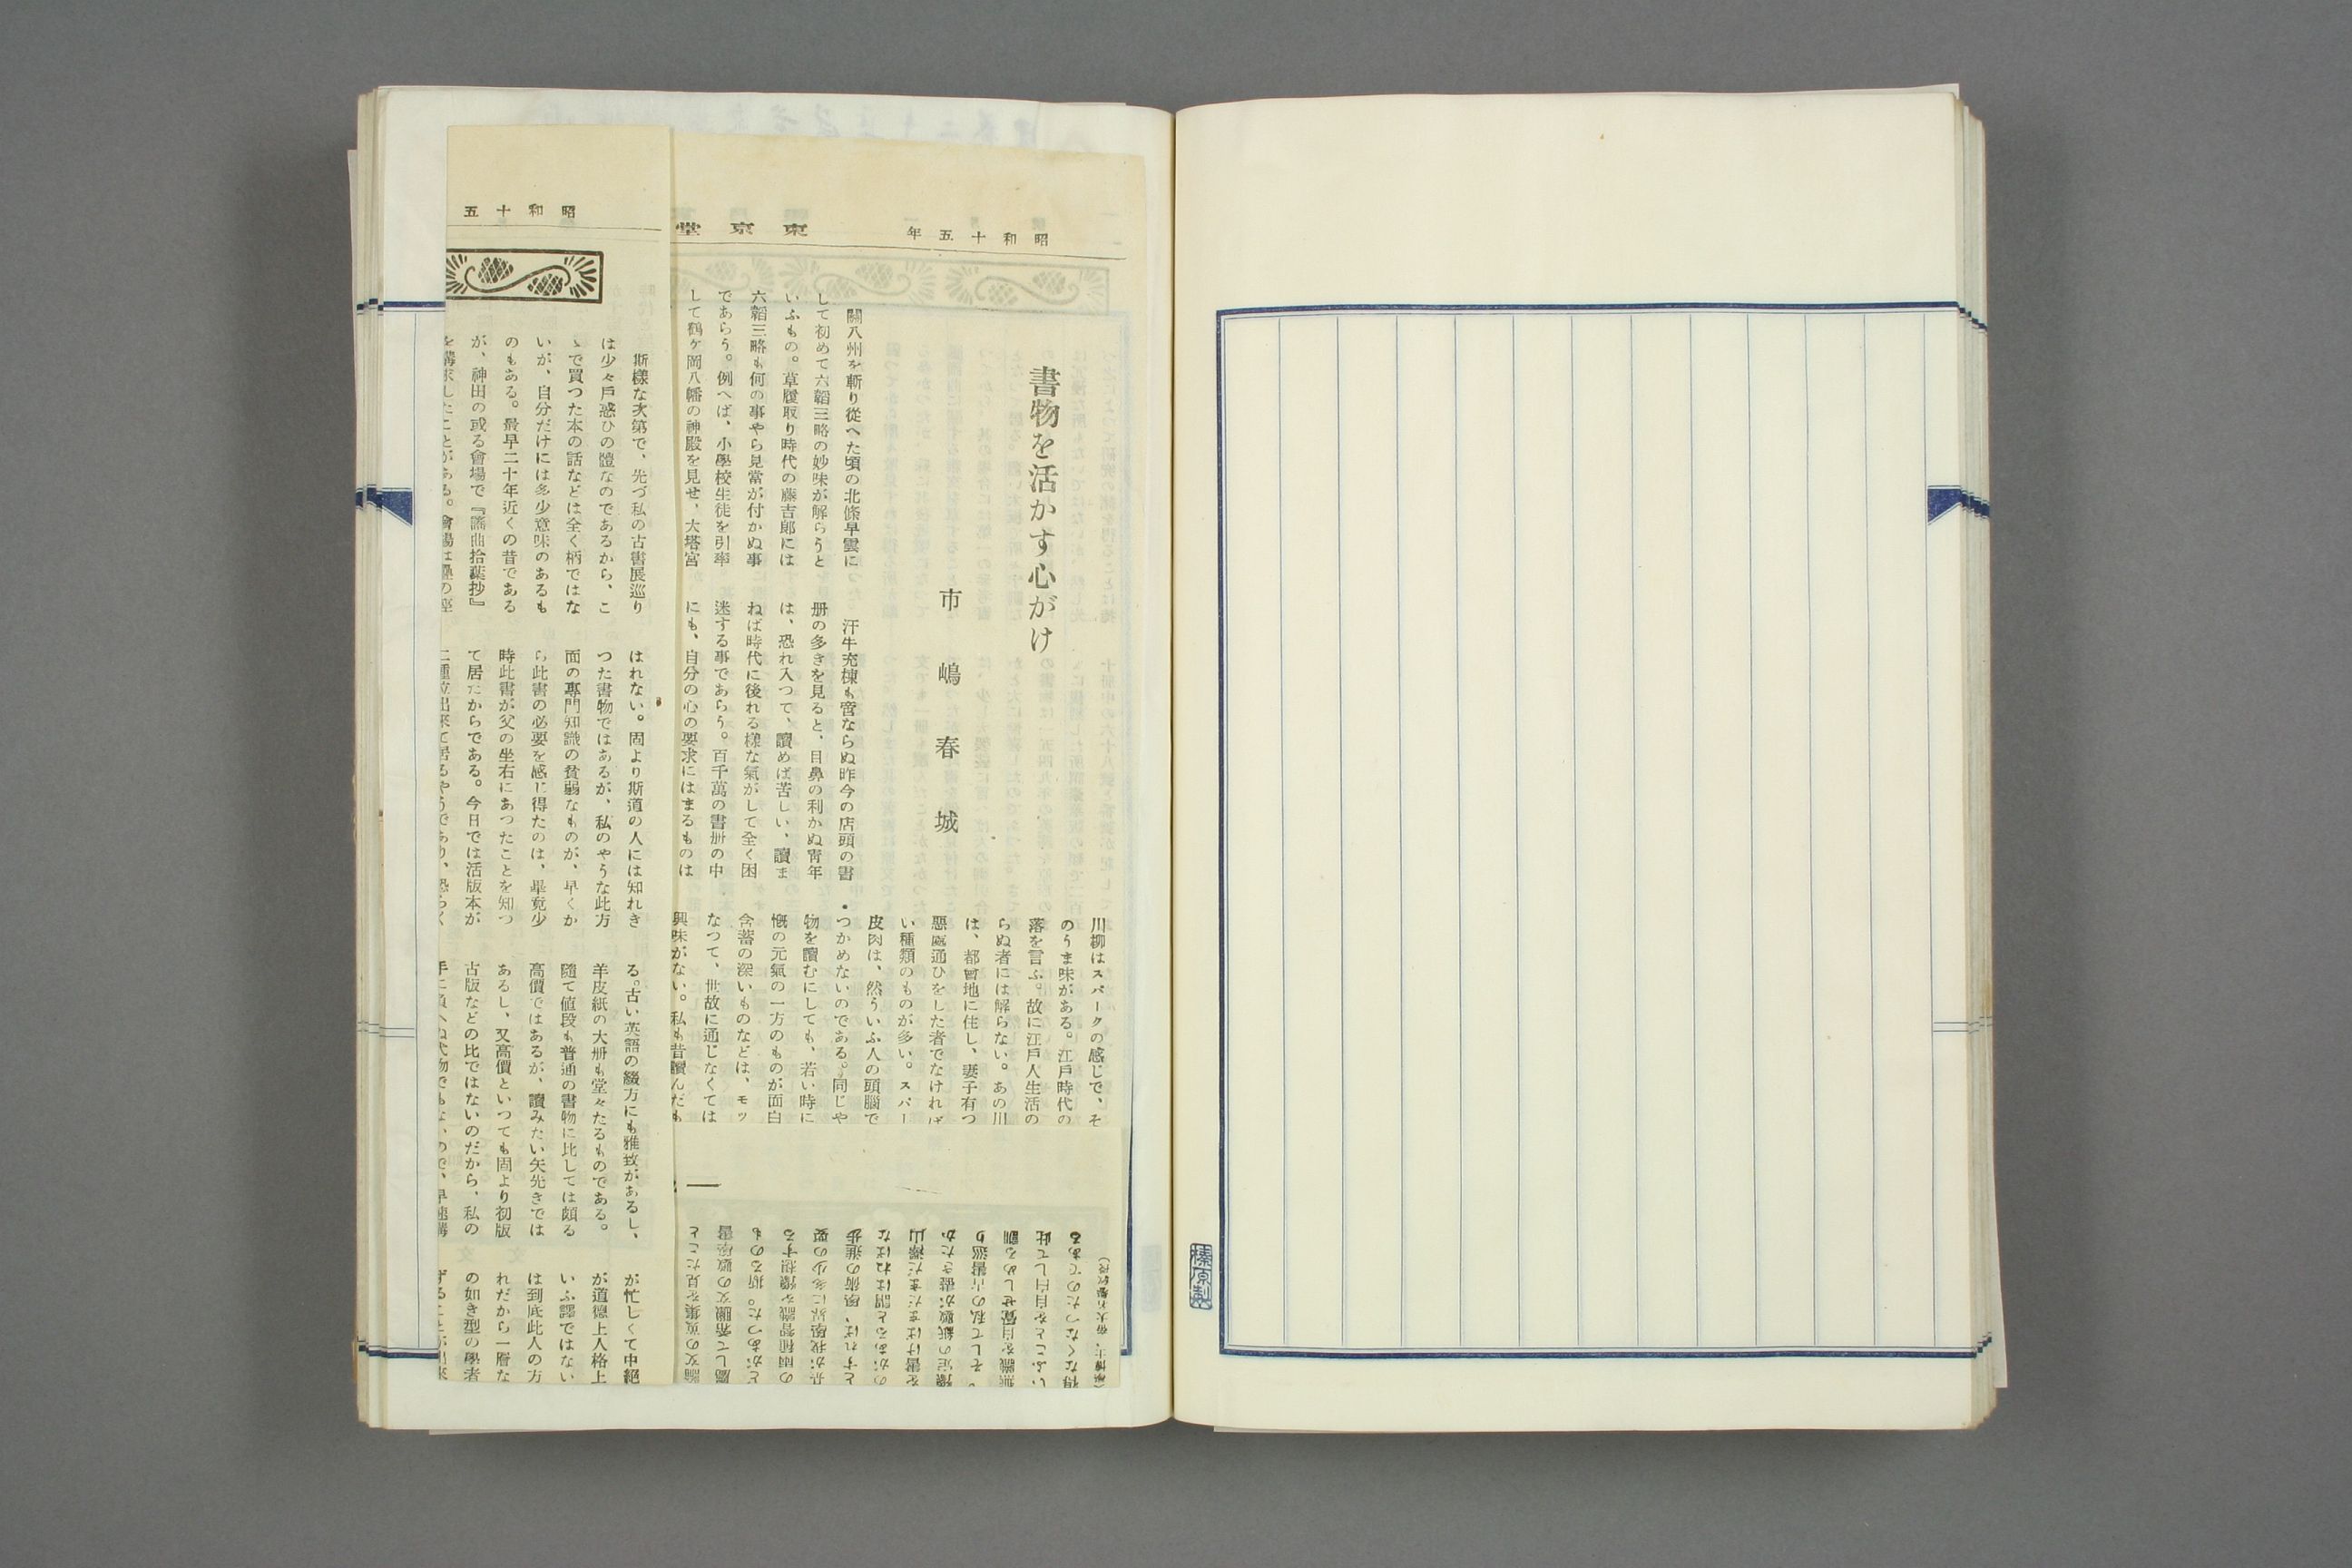 昭和十五年
東京堂
書物を活かす心がけ
市嶋春城
關八州を斬り從へた頃の北條早雲に
して初めて六韜三略の妙味が解らうと
いふもの。草履取り時代の藤吉郞には
六韜三略も何の事やら見當が付かぬ事
であらう。例へば、小學校生徒を引率
して鶴ヶ岡八幡の神殿を見せ、大塔宮
汗牛充棟も啻ならぬ昨今の店頭の書
册の多きを見ると、目鼻の利かぬ靑年
は、恐れ入つて、讀めば苦しい、讀ま
ねば時代に後れる樣な氣がして全く困
迷する事であらう。百千萬の書册の中
にも、自分の心の要求にはまるものは
川柳はスパークの感じで、そ
のうま味がある。江戶時代の
落を言ふ。故に江戶人生活の
らぬ者には解らない。あの川
は、都會地に住し、妻子有つ
惡處通ひをした者でなければ
い種類のものが多い。スパー
皮肉は、然ういふ人の頭腦で
つかめないのである。同じや
物を讀むにしても、若い時に
慨の元氣の一方のものが面白
含蓄の深いものなどは、モッ
なつて、世故に通じなくては
興味がない。私も昔讀んだも
る。
得なくなつたのである
いふことを自白して此
無識を自覺せしめる訓
。そして私の古書巡り
豫定の紙數が盡きたか
を書けばまだまだ澤山
のがあると謂はねばな
とすれば、學術の進步
昭和十五
斯樣な次第で、先づ私の古書展巡り
は少々戶惑ひの體なのであるから、こ
ゝで買つた本の話などは全く柄ではな
いが、自分だけには多少意味のあるも
のもある。最早二十年近くの昔である
が、神田の或る會場で『謠曲拾葉抄』
を購求したことがある。會場は疊の座
はれない。固より斯道の人には知れき
つた書物ではあるが、私のやうな此方
面の專門知識の貧弱なものが、早くか
ら此書の必要を感じ得たのは、畢竟少
時此書が父の坐右にあつたことを知つ
て居たからである。今日では活版本が
二種位出來て居るやうであり、恐らく
る。古い英語の綴方にも雅致があるし、
羊皮紙の大册も堂々たるものである。
隨て値段も普通の書物に比しては頗る
高價ではあるが、讀みたい矢先きでは
あるし、又高價といつても固より初版
古版などの比ではないのだから、私の
が忙しくて中絕
が道德上人格上
いふ譯ではない
は到底此人の方
れだから一層な
の如き型の學者
榛原製